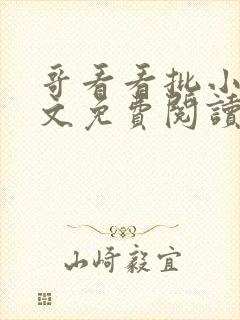 哥看看批小
文免費閱讀
山崎毅宜